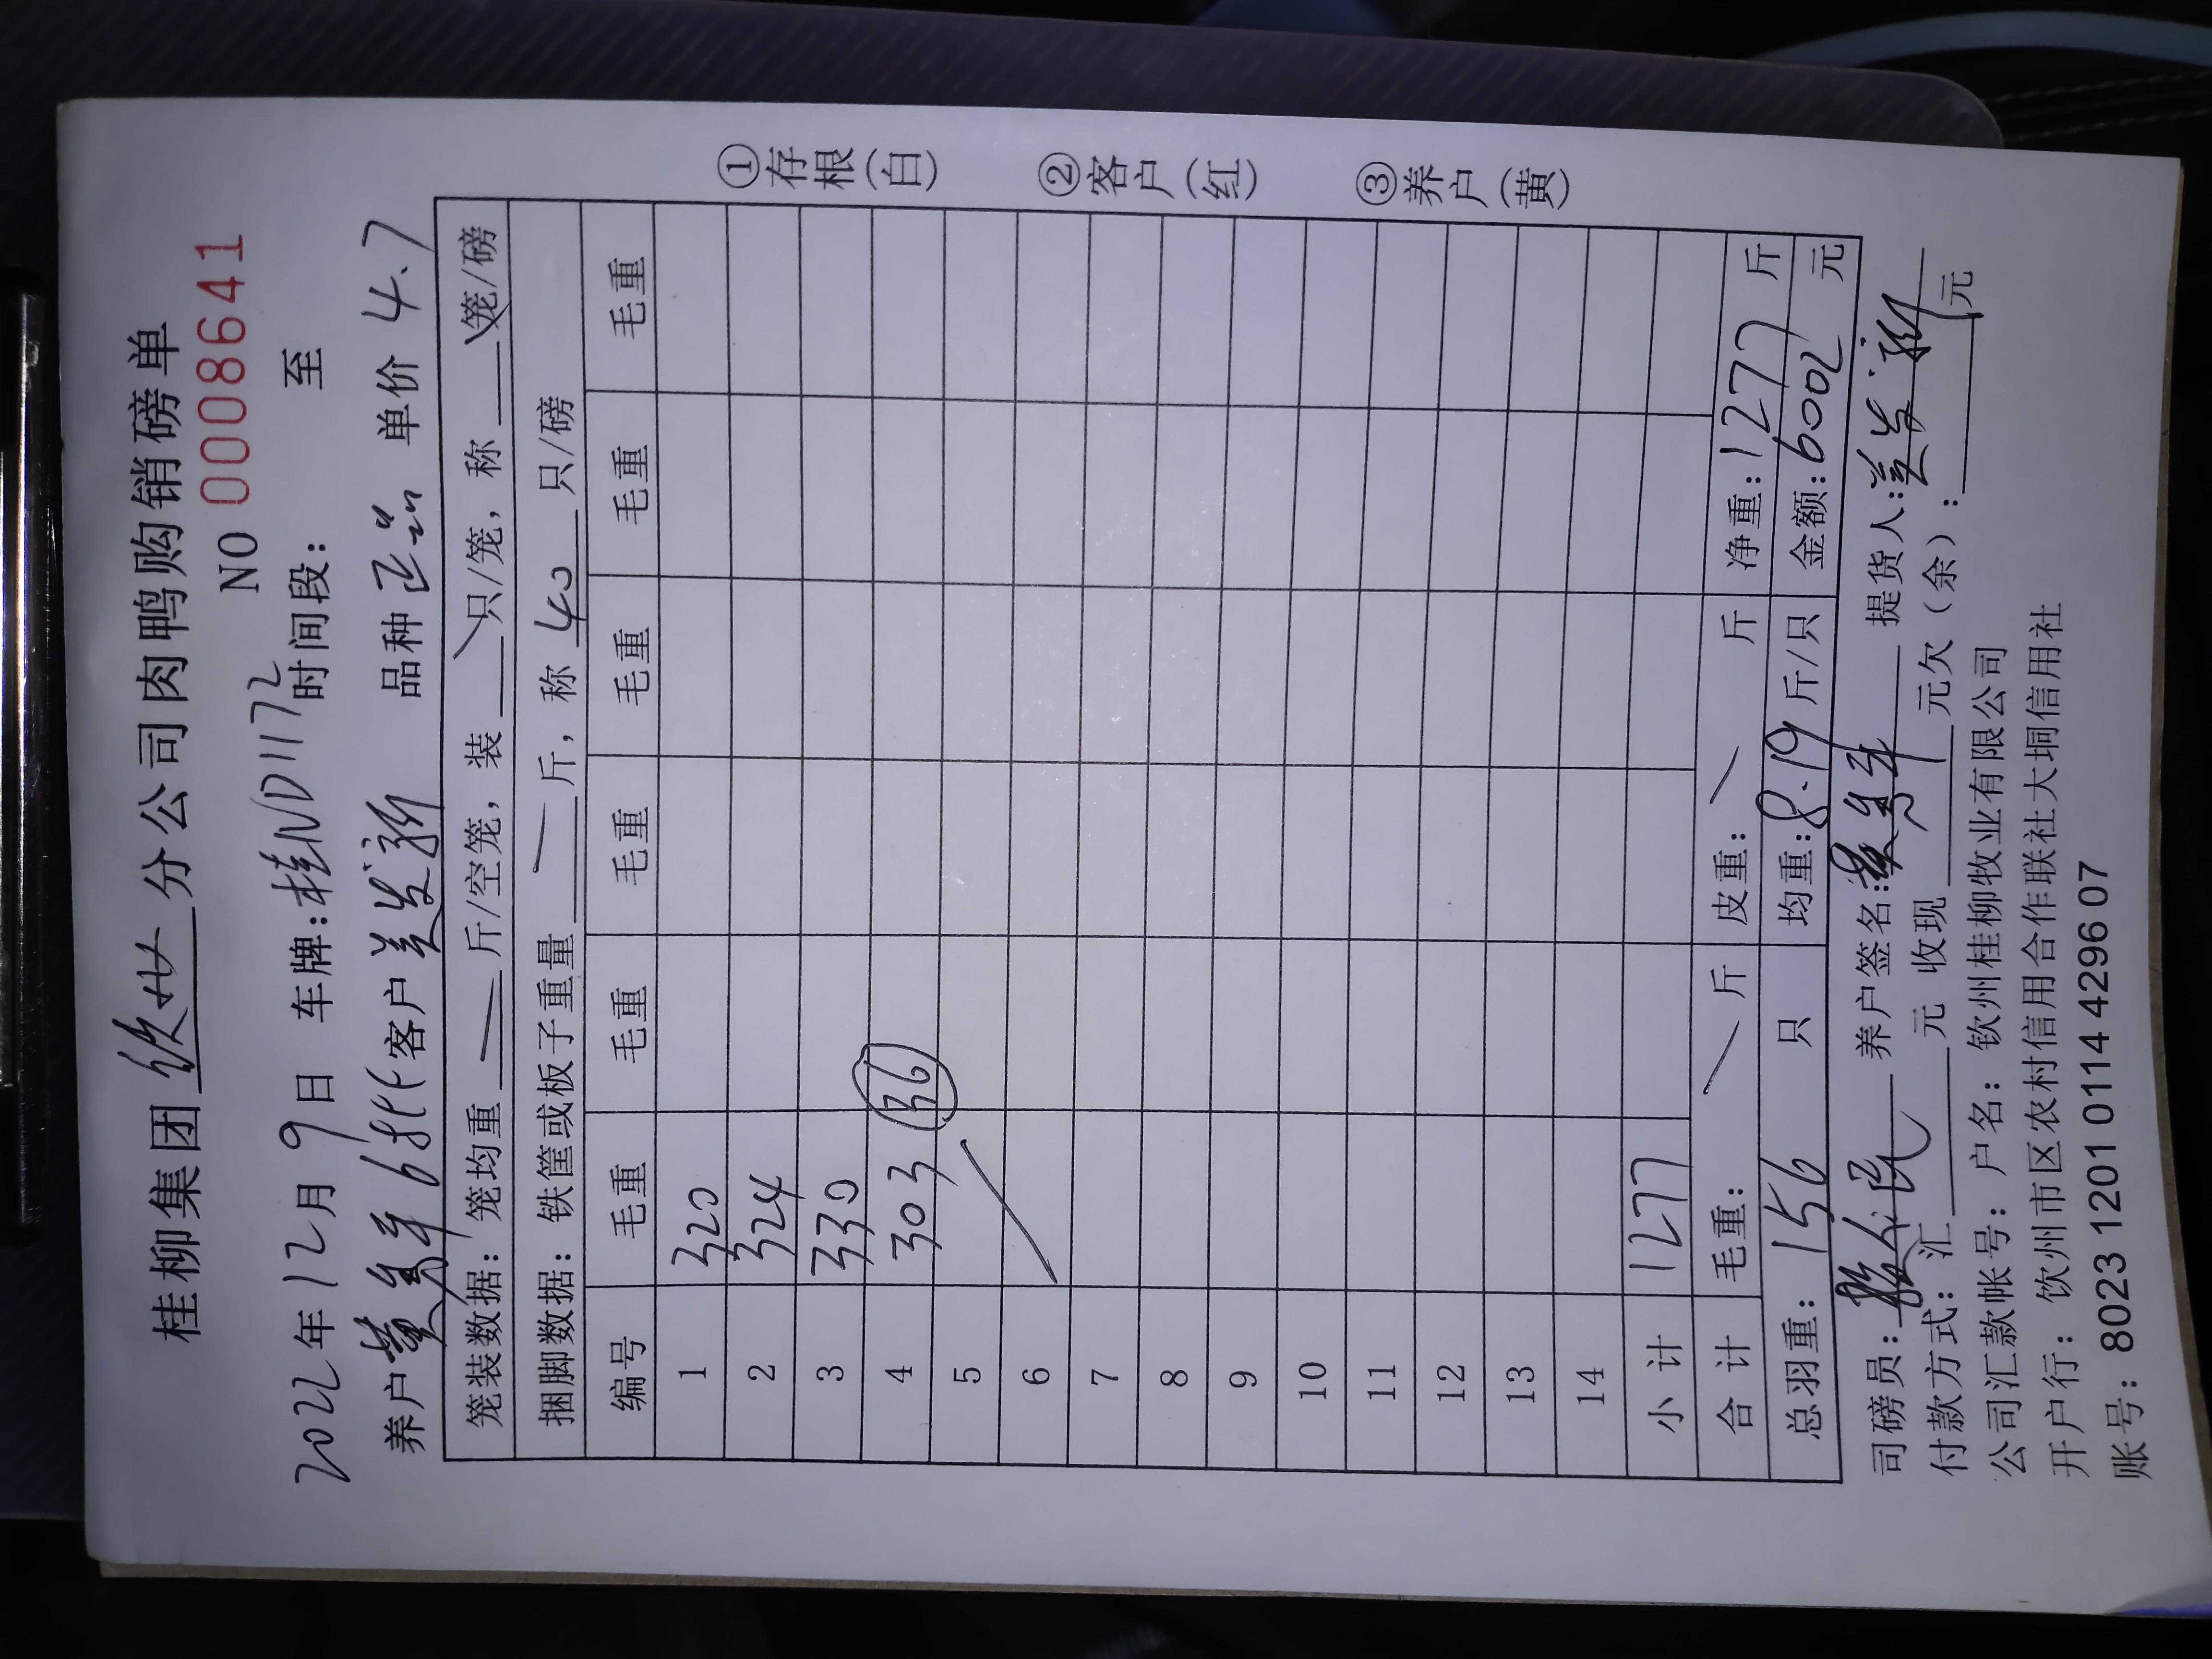 桂柳集团 钦州 分公司肉鸭购销磅单
NO 0008641
2022年12月9日 车牌:桂ND1172 时间段: 至
养户 客户 品种 正品 单价 4.7
笼装数据:笼均重 斤/空笼,装 只/笼,称 笼/磅
捆脚数据:铁筐或板子重量 斤,称 40 只/磅
编号 毛重 毛重 毛重 毛重 毛重 毛重
1 320
2 324
3 330
4 303 36
5
6
7
8
9
10
11
12
13
14
小计 1277
合计 毛重: 斤 皮重: 斤 净重:1277 斤
总羽重:156 只 均重:8.19 斤/只 金额:6002 元
司磅员: 养户签名: 提货人:
付款方式:汇 元 收现 元欠(余): 元
公司汇款帐号:户名:钦州桂柳牧业有限公司
开户行:饮州市区农村信用合作联社大垌信用社
账号:8023 1201 0114 4296 07
①存根(白)
②客户(红)
③养户(黄)